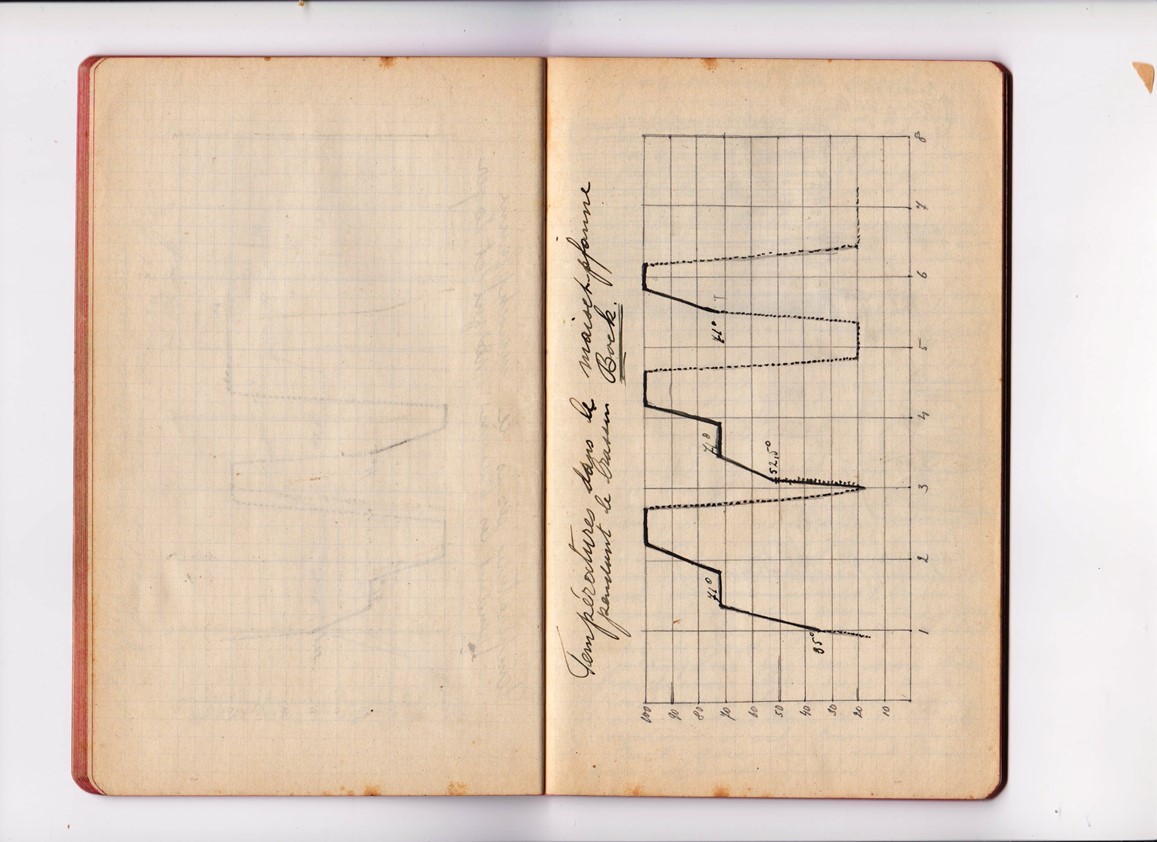 Températures dans le maischpfanne
pendant le brassin Bock.
100
90
80
70
60
50
40
30
20
10
35°
71°
52,5°
71°
71°
1
2
3
4
5
6
7
8